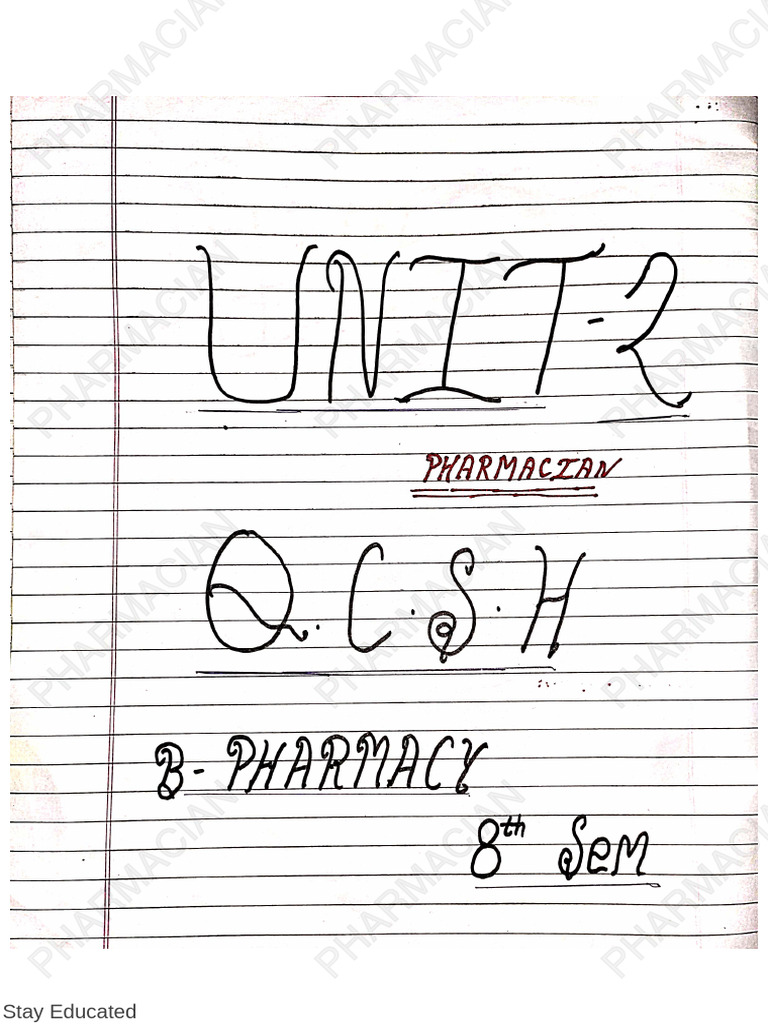 UNIT-2
PHARMACIAN
Q.C.S.H
B-PHARMACY
8th Sem
Stay Educated